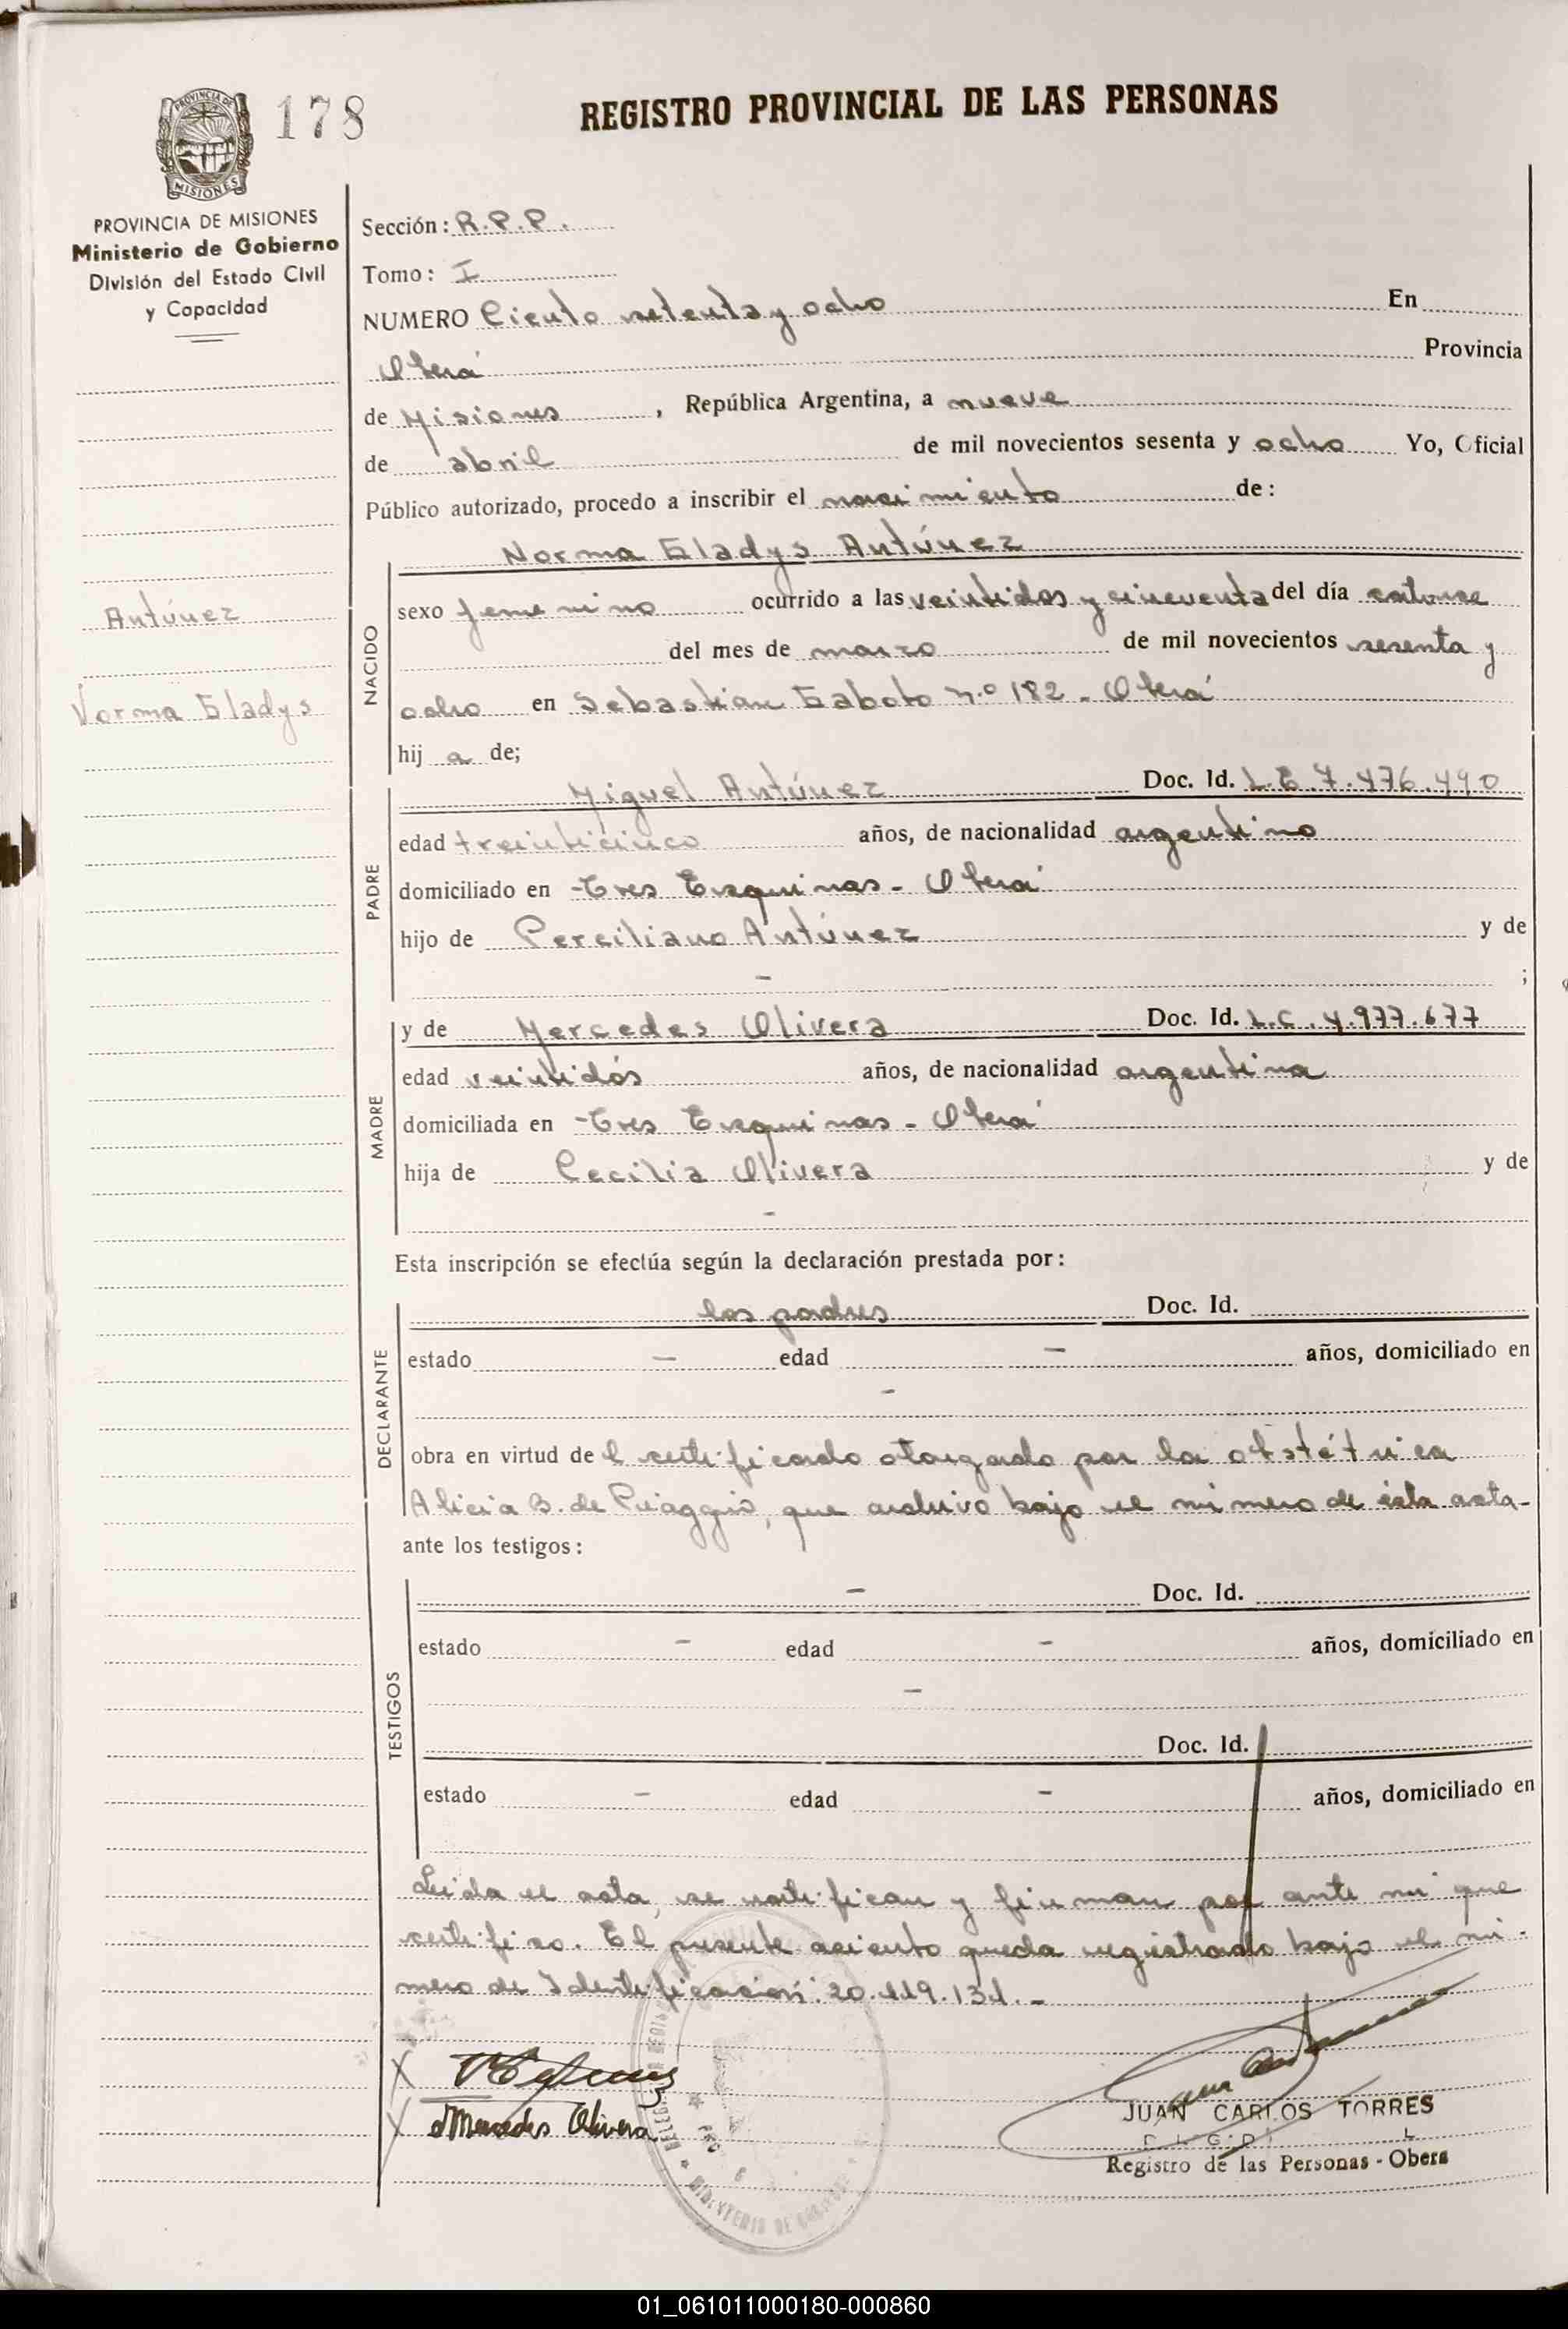 178
REGISTRO PROVINCIAL DE LAS PERSONAS
PROVINCIA DE
MISIONES
PROVINCIA DE MISIONES
Ministerio de Gobierno
División del Estado Civil
y Capacidad
Antúnez
Norma Gladys
Sección: R.P.P.
Tomo: I
NUMERO Ciento setenta y ocho En
Oberá Provincia
de Misiones, República Argentina, a nueve
de abril de mil novecientos sesenta y ocho Yo, Oficial
Público autorizado, procedo a inscribir el nacimiento de:
NACIDO
Norma Gladys Antúnez
sexo femenino ocurrido a las veintidos y cincuenta del día catorce
del mes de marzo de mil novecientos sesenta y
ocho en Sebastian Gaboto n.º 182 - Oberá
hij a de;
PADRE
Miguel Antúnez Doc. Id. L.E. 7.476.490
edad treinticinco años, de nacionalidad argentino
domiciliado en Tres Esquinas - Oberá
hijo de Perciliano Antúnez y de
- ;
MADRE
y de Mercedes Olivera Doc. Id. L.C. 4.977.677
edad veintidós años, de nacionalidad argentina
domiciliada en Tres Esquinas - Oberá
hija de Cecilia Olivera y de
-
Esta inscripción se efectúa según la declaración prestada por:
DECLARANTE
los padres Doc. Id.
estado - edad - años, domiciliado en
-
obra en virtud de l certificado otorgado por la obstétrica
Alicia B. de Piaggio, que archivo bajo el número de ésta acta-
ante los testigos:
TESTIGOS
- Doc. Id.
estado - edad - años, domiciliado en
-
Doc. Id.
estado - edad - años, domiciliado en
Leida el acta, se ratifican y firman por ante mi que
certifico. El presente asiento queda registrado bajo el nú-
mero de Identificación: 20.119.131.-
Mercedes Olivera
JUAN CARLOS TORRES
Registro de las Personas - Obera
01_061011000180-000860